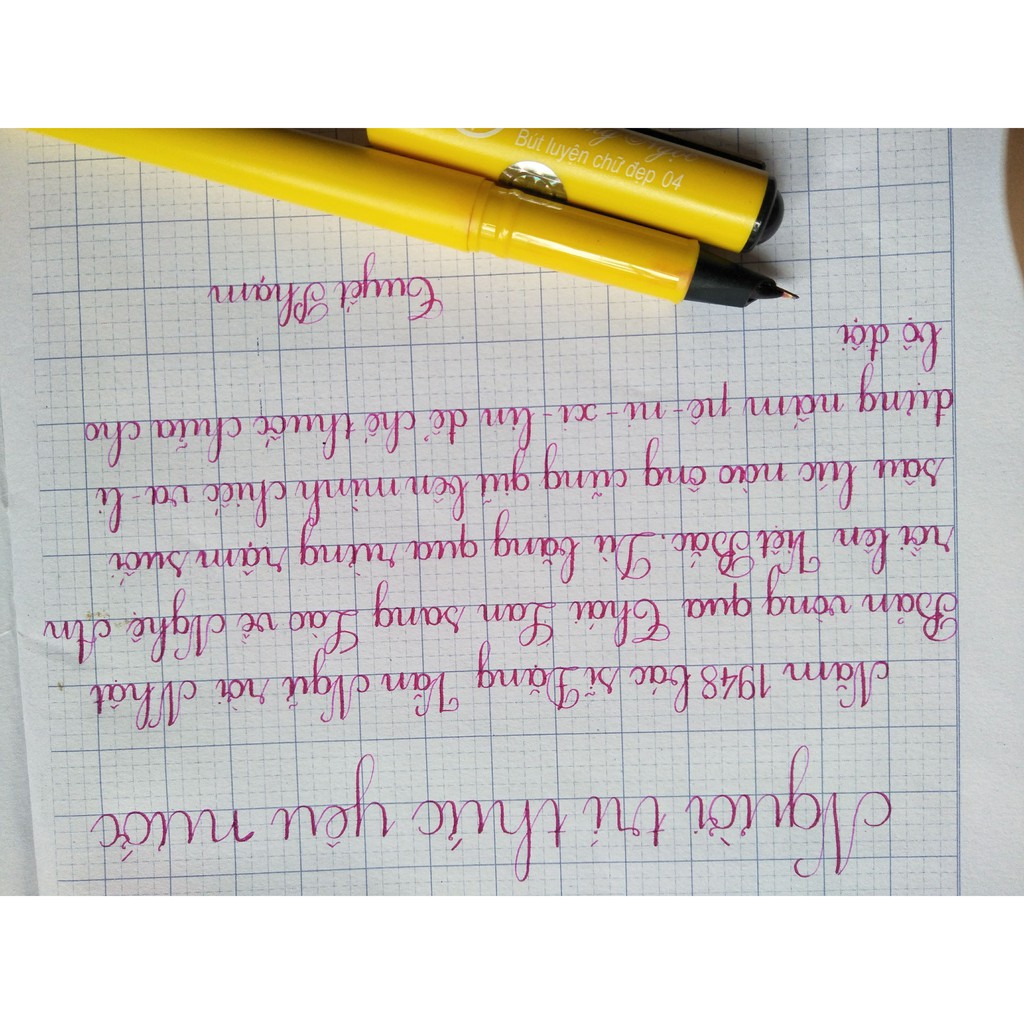 Người trí thức yêu nước
Năm 1948 bác sĩ Đặng Văn Ngữ rời Nhật
Bản vòng qua Thái Lan sang Lào về Nghệ An
rồi lên Việt Bắc. Dù băng qua rừng rậm suối
sâu lúc nào ông cũng giữ bên mình chiếc va-li
đựng nấm pê-ni-xi-lin để chế thuốc chữa cho
bộ đội
Tuyết Phạm
Bút luyện chữ đẹp 04